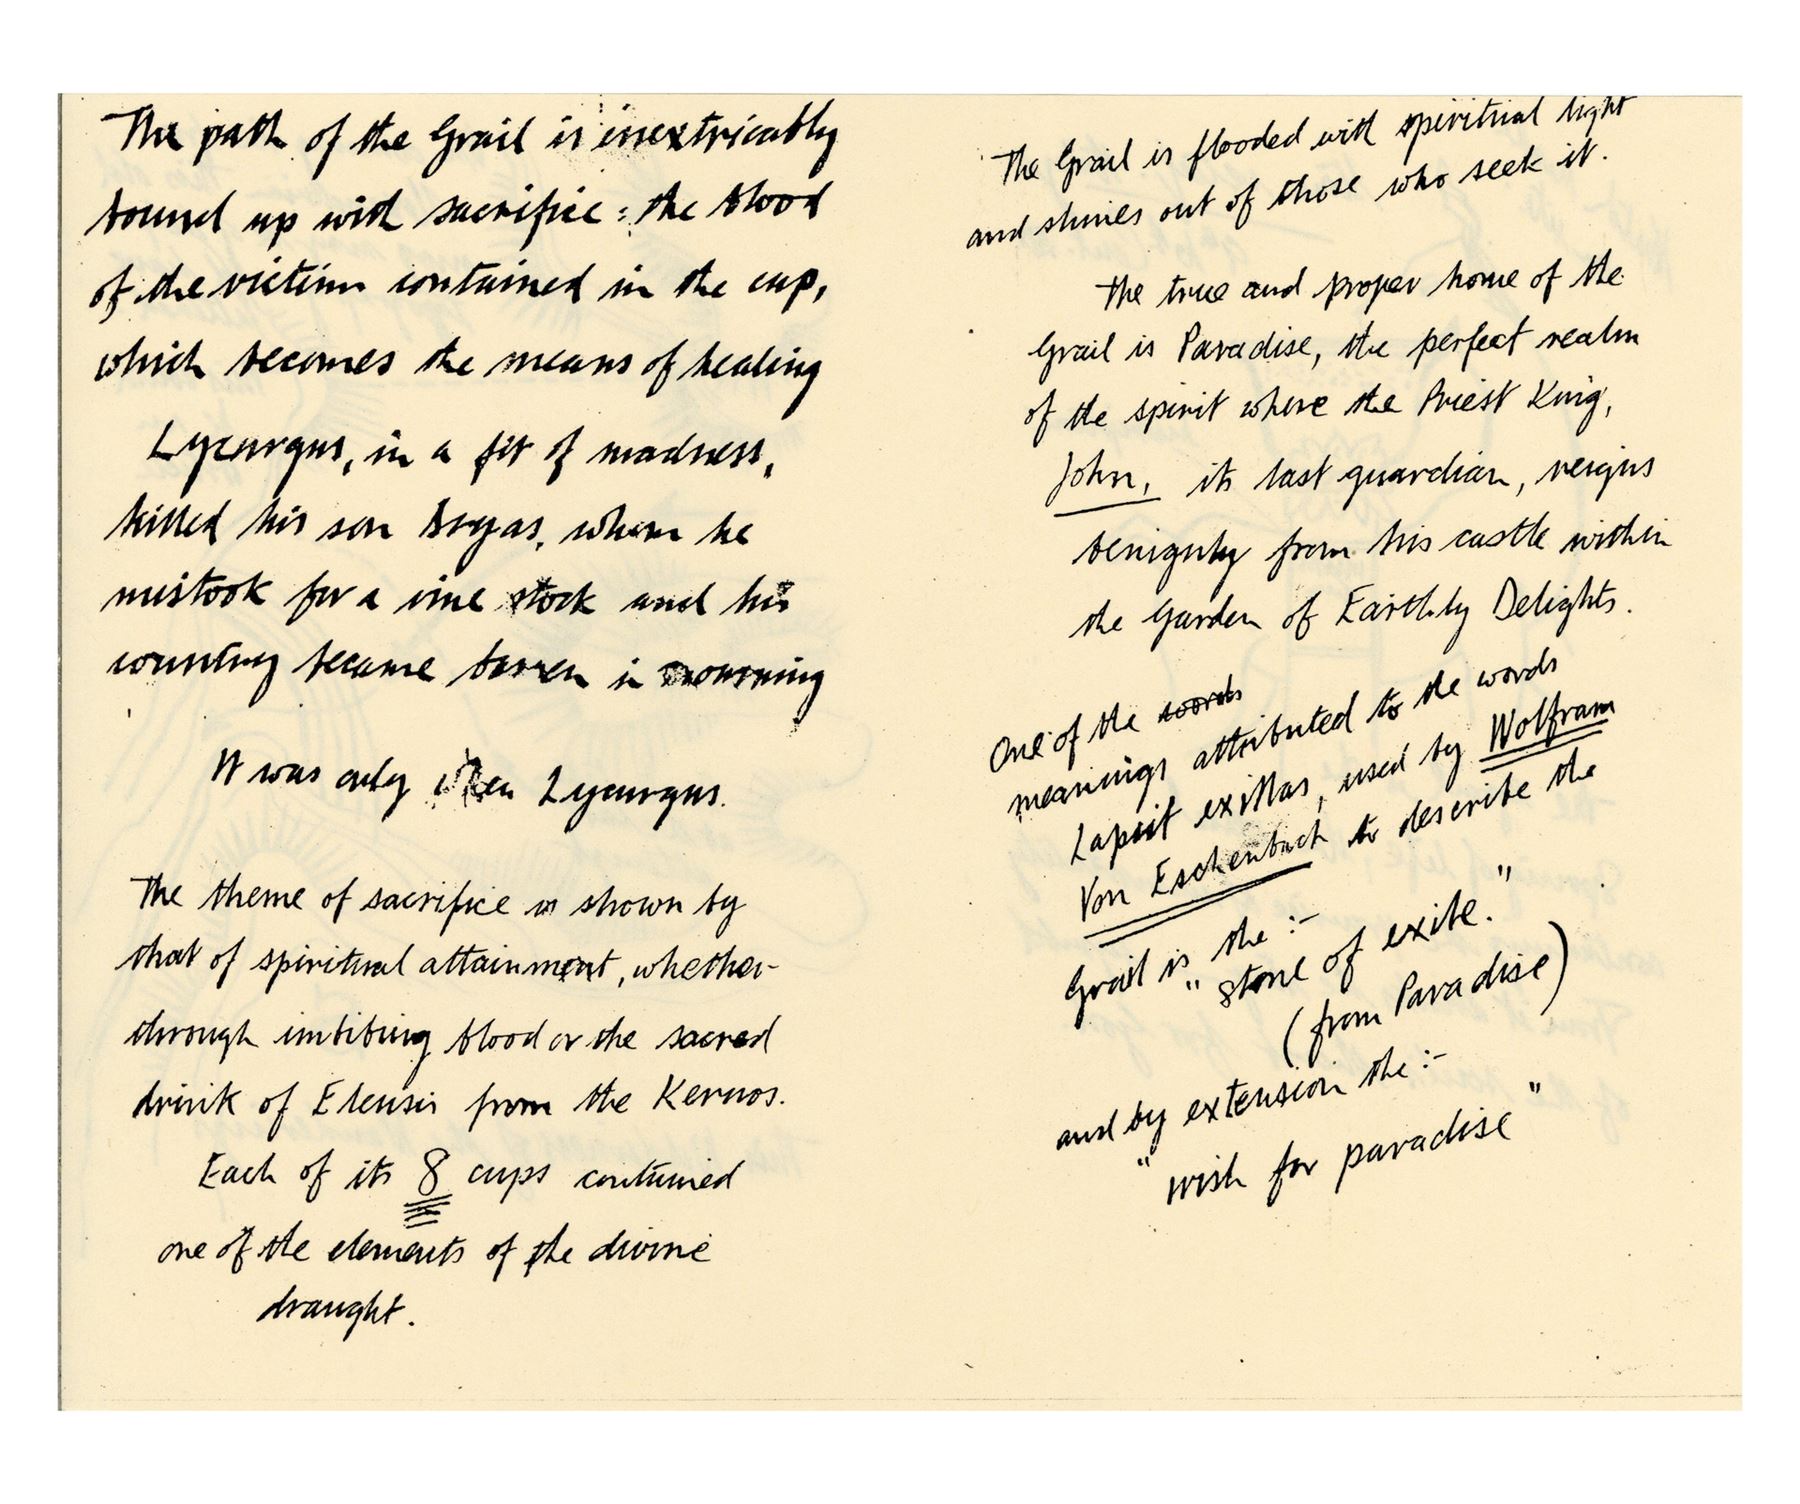 The path of the Grail is inextricably
bound up with sacrifice: the blood
of the victim contained in the cup,
which becomes the means of healing
Lycurgus, in a fit of madness,
killed his son Dryas, whom he
mistook for a vine stock and his
country became barren in mourning
It was only when Lycurgus.
The theme of sacrifice is shown by
that of spiritual attainment, whether
through imbibing blood or the sacred
drink of Eleusis from the Kernos.
Each of its 8 cups contained
one of the elements of the divine
draught.
The Grail is flooded with spiritual light
and shines out of those who seek it.
The true and proper home of the
Grail is Paradise, the perfect realm
of the spirit where the Priest King,
John, its last guardian, reigns
benignly from his castle within
the Garden of Earthly Delights.
One of the words
meanings attributed to the words
Lapsit exillas, used by Wolfram
Von Eschenbach to describe the
Grail is the :-
"stone of exile."
(from Paradise)
and by extension the :-
"wish for paradise"